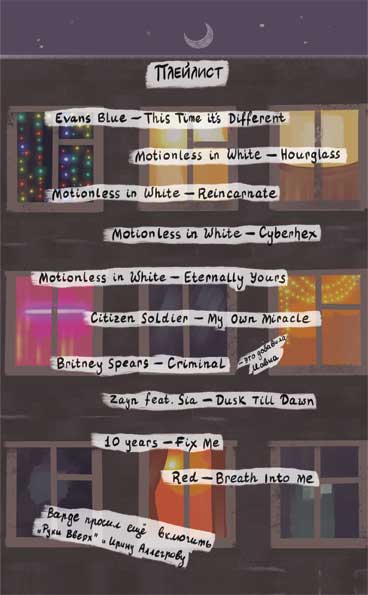 Плейлист
Evans Blue – This Time it's Different
Motionless in White – Hourglass
Motionless in White – Reincarnate
Motionless in White – Cyberhex
Motionless in White – Eternally Yours
Citizen Soldier – My Own Miracle
Britney Spears – Criminal
– это добавила
Мавна
Zayn feat. Sia – Dusk Till Dawn
10 years – Fix Me
Red – Breath Into Me
Варде просил ещё включить
„Руки Вверх" и Ирину Аллегрову